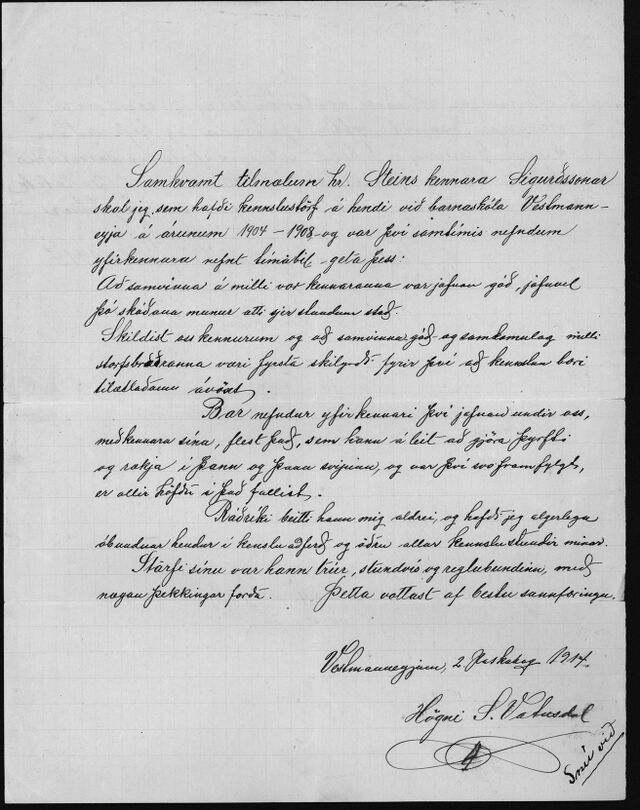 Samkvæmt tilmælum hr. Steins kennara Sigurðssonar
skal jeg, sem hafði kennslustörf á hendi við barnaskóla Vestmann-
eyja á árunum 1904-1908 og var því samtímis nefndum
yfirkennara nefnt tímabil geta þess:
Að samvinna á milli vor kennaranna var jafnan góð, jafnvel
þó skoðana munur ætti sjer stundum stað.
Skildist oss kennurum og að samvinna góð og samkomulag milli
starfsbræðranna væri fyrsta skilyrði fyrir því að kennslan bæri
tilætlaðann ávöxt.
Bar nefndur yfirkennari því jafnan undir oss,
meðkennara sína, flest það, sem hann á leit að gjöra þyrfti
og rækja í þann og þann svipinn, og var því svo framfylgt,
er allir höfðu í það fallist.
Ráðríki beitti hann mig aldrei, og hafði jeg algerlega
óbundnar hendur í kensluaðferð og öðru allar kennslustundir mínar.
Starfi sínu var hann trúr, stundvís og reglubundinn, með
nægan þekkingar forða. Þetta vottast af bestu sannfæringu.
Vestmannaeyjum, 2. Páskadag 1914.
Högni S. Vatnsdal
Snú við